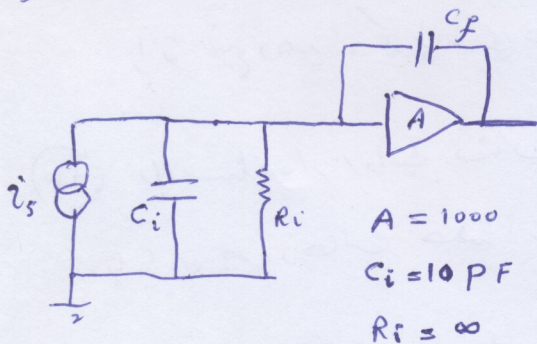 Cf
A
is
Ci
Ri
A = 1000
Ci = 10 PF
Ri = ∞